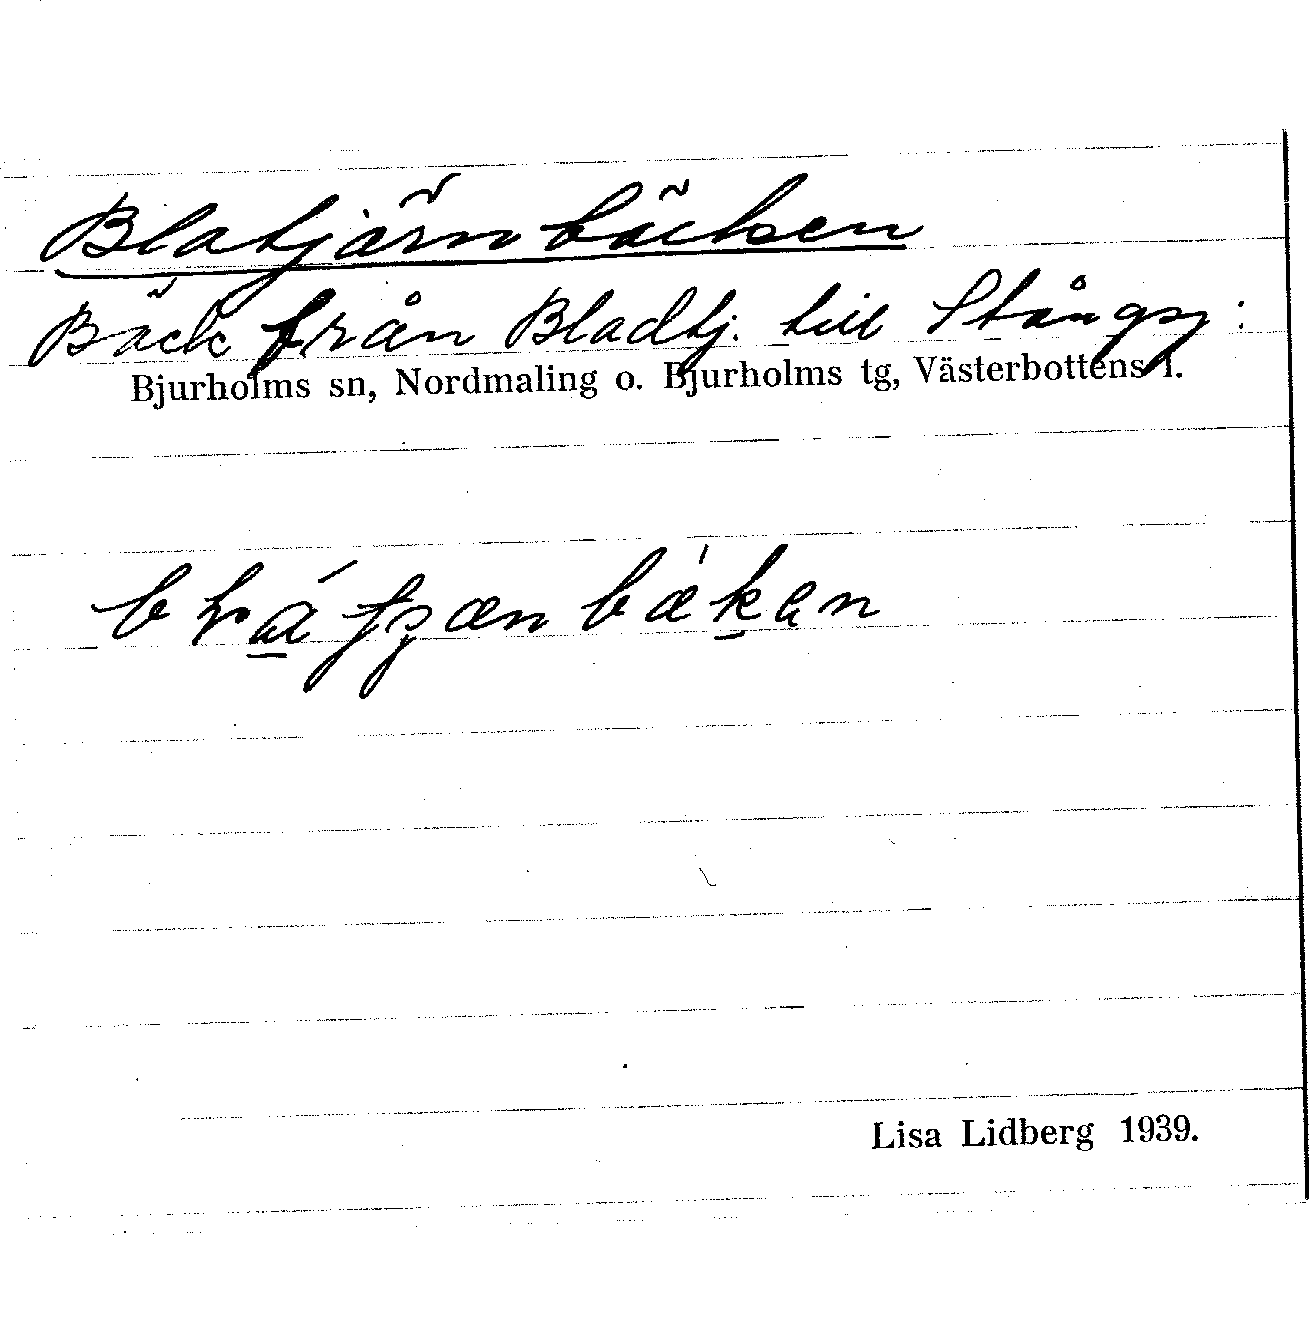 Blatjärnbäcken
Bäck från Bladtj. till Stångsj.
Bjurholms sn, Nordmaling o. Bjurholms tg, Västerbottens l.
Lisa Lidberg 1939.